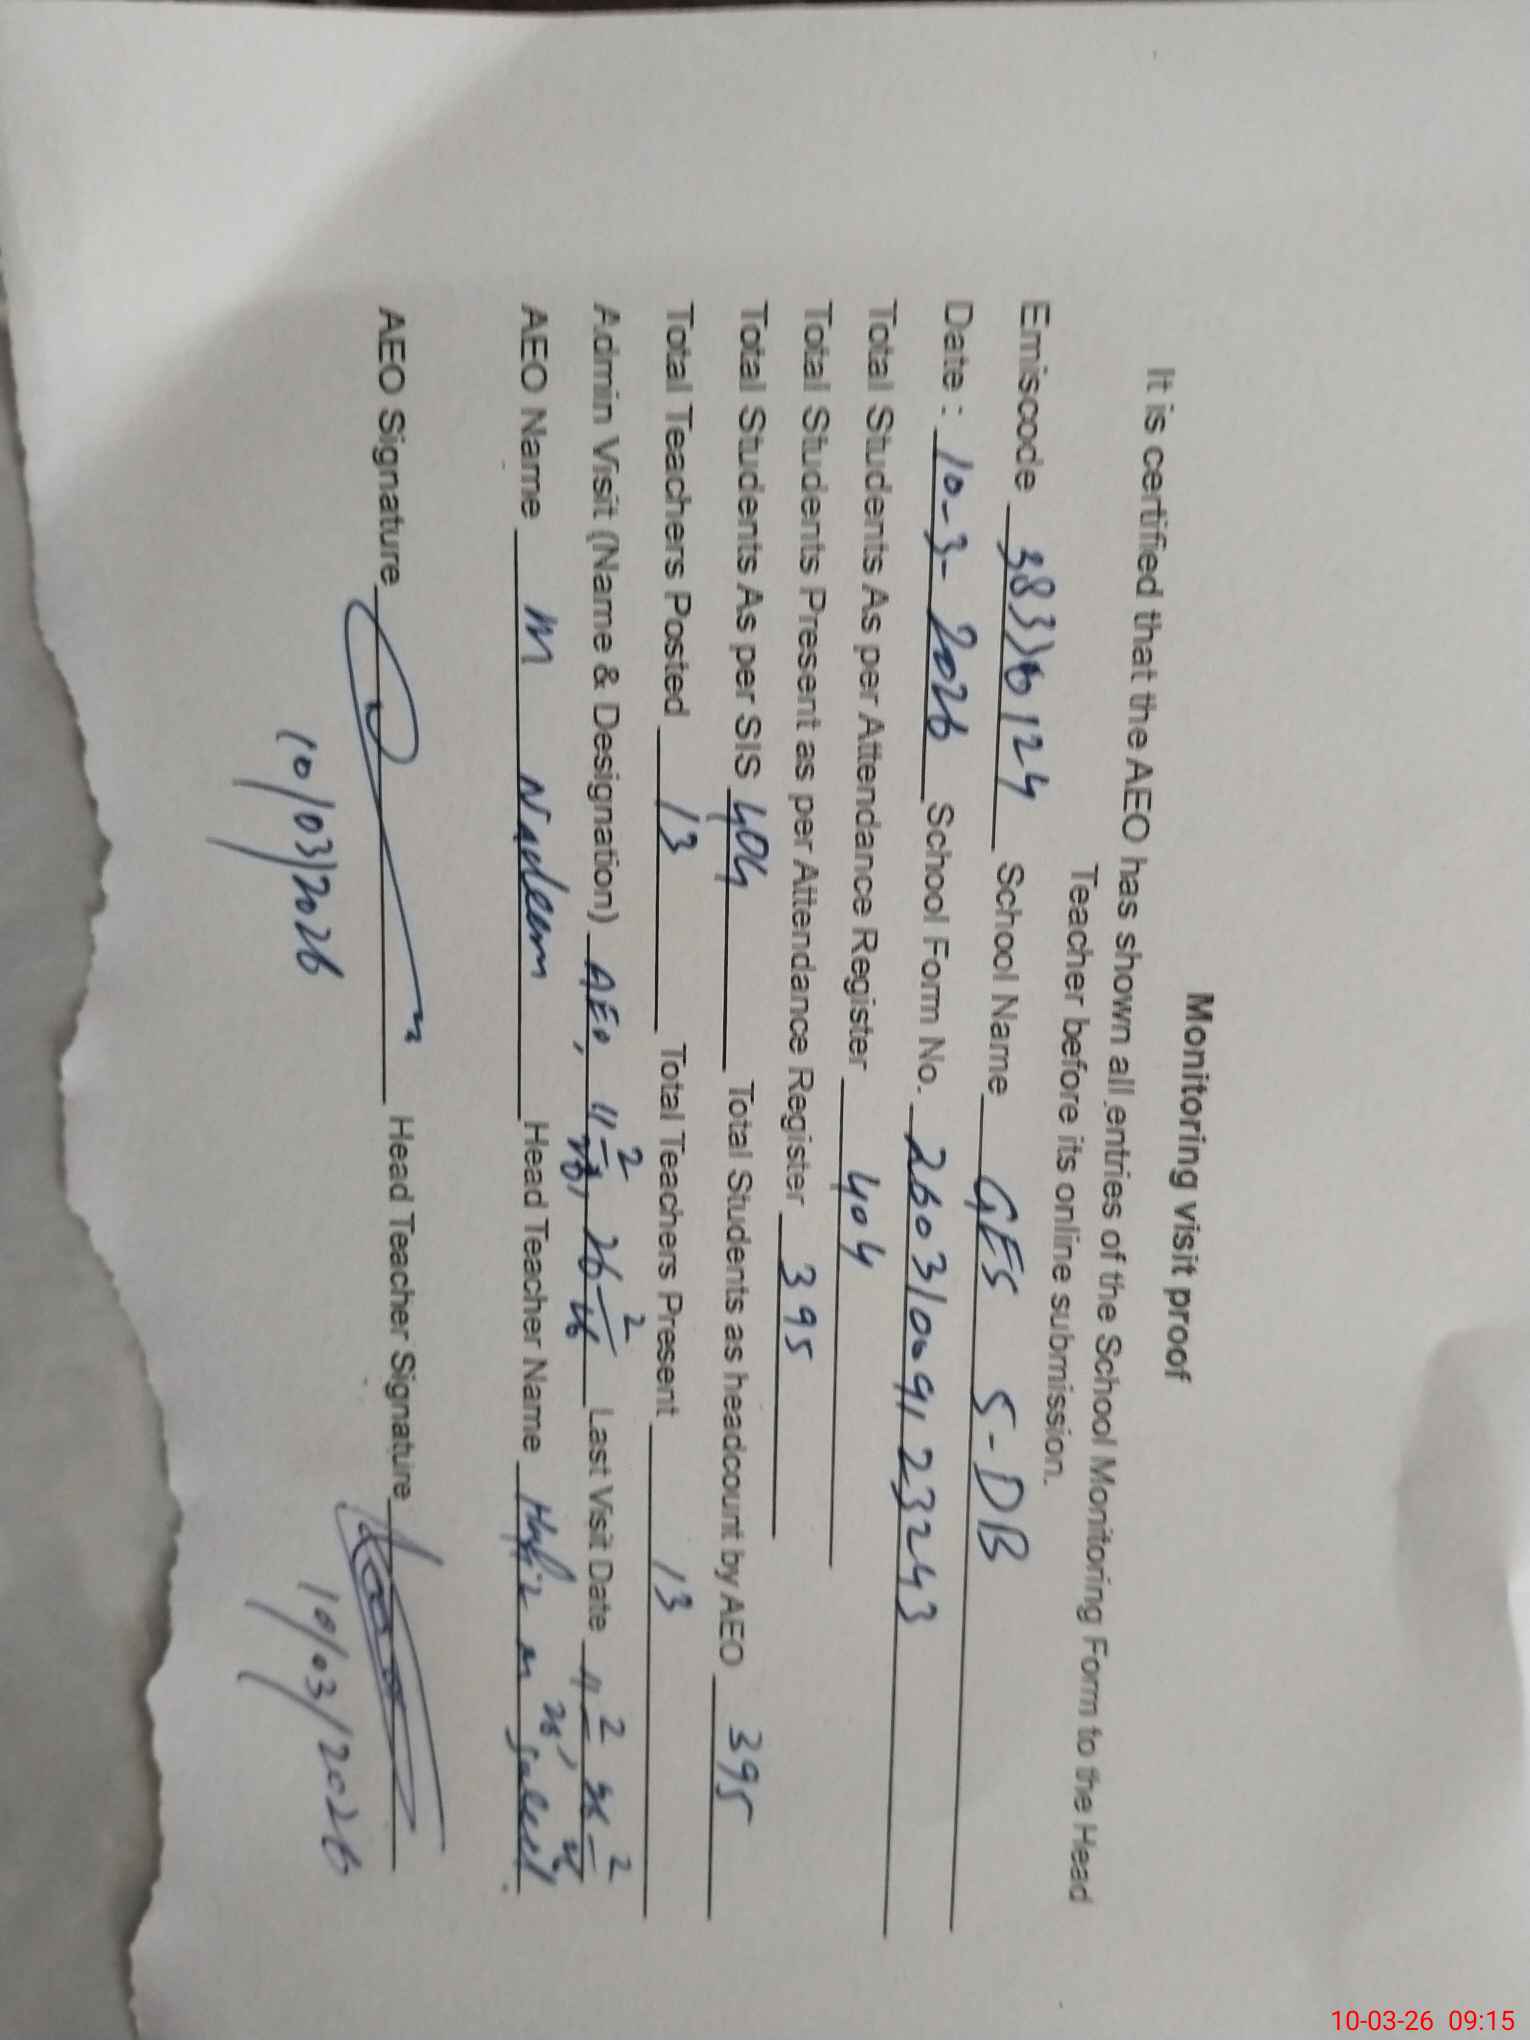 Monitoring visit proof
It is certified that the AEO has shown all entries of the School Monitoring Form to the Head
Teacher before its online submission.
Emiscode 38330124 School Name GES 5-DB
Date : 10-3-2026 School Form No. 2603100912 3243
Total Students As per Attendance Register 404
Total Students Present as per Attendance Register 395
Total Students As per SIS 404 Total Students as headcount by AEO 395
Total Teachers Posted 13 Total Teachers Present 13
Admin Visit (Name & Designation) AEO, 11-2-26, 26-2-26 Last Visit Date 11-2-26,
AEO Name M Nadeem Head Teacher Name Hafiz M
AEO Signature Head Teacher Signature
10/03/2026 10/03/2026
10-03-26 09:15